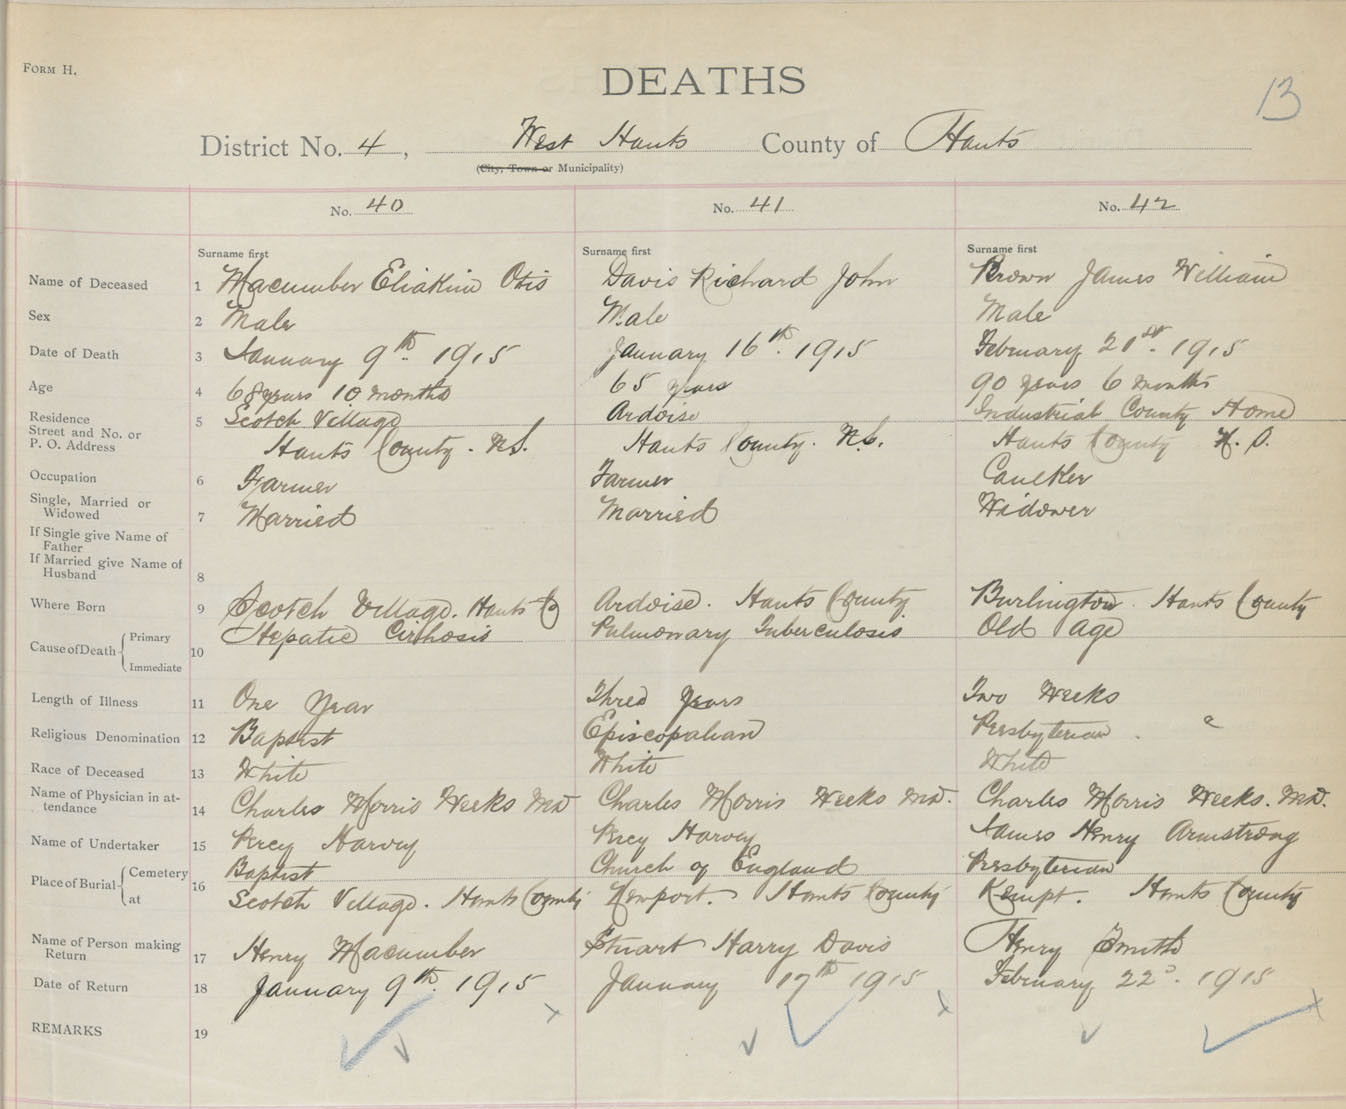 FORM H.
DEATHS
13
District No. 4, West Hants County of Hants
(City, Town or Municipality)
No. 40 No. 41 No. 42
Surname first Surname first Surname first
Name of Deceased 1 Macumber Eliakim Otis Davis Richard John Brown James William
Sex 2 Male Male Male
Date of Death 3 January 9th. 1915 January 16th. 1915 February 21st. 1915
Age 4 68 years 10 months 65 years 90 years 6 months
Residence Street and No. or P. O. Address 5 Scotch Village Ardoise Industrial County Home
Hants County. N.S. Hants County. N.S. Hants County N.S.
Occupation 6 Farmer Farmer Caulker
Single, Married or Widowed 7 Married Married Widower
If Single give Name of Father
If Married give Name of Husband 8
Where Born 9 Scotch Village. Hants Co Ardoise. Hants County Burlington. Hants County
Cause of Death Primary Immediate 10 Hepatic Cirhosis Pulmonary Tuberculosis Old Age
Length of Illness 11 One Year Three Years Two Weeks
Religious Denomination 12 Baptist Episcopalian Presbyterian
Race of Deceased 13 White White White
Name of Physician in attendance 14 Charles Morris Weeks MD Charles Morris Weeks MD. Charles Morris Weeks. MD.
Name of Undertaker 15 Percy Harvey Percy Harvey James Henry Armstrong
Place of Burial Cemetery 16 Baptist Church of England Presbyterian
at Scotch Village. Hants County Newport. Hants County Kempt. Hants County
Name of Person making Return 17 Henry Macumber Stuart Harry Davis Henry Smith
Date of Return 18 January 9th. 1915 January 17th 1915 February 22d. 1915
REMARKS 19